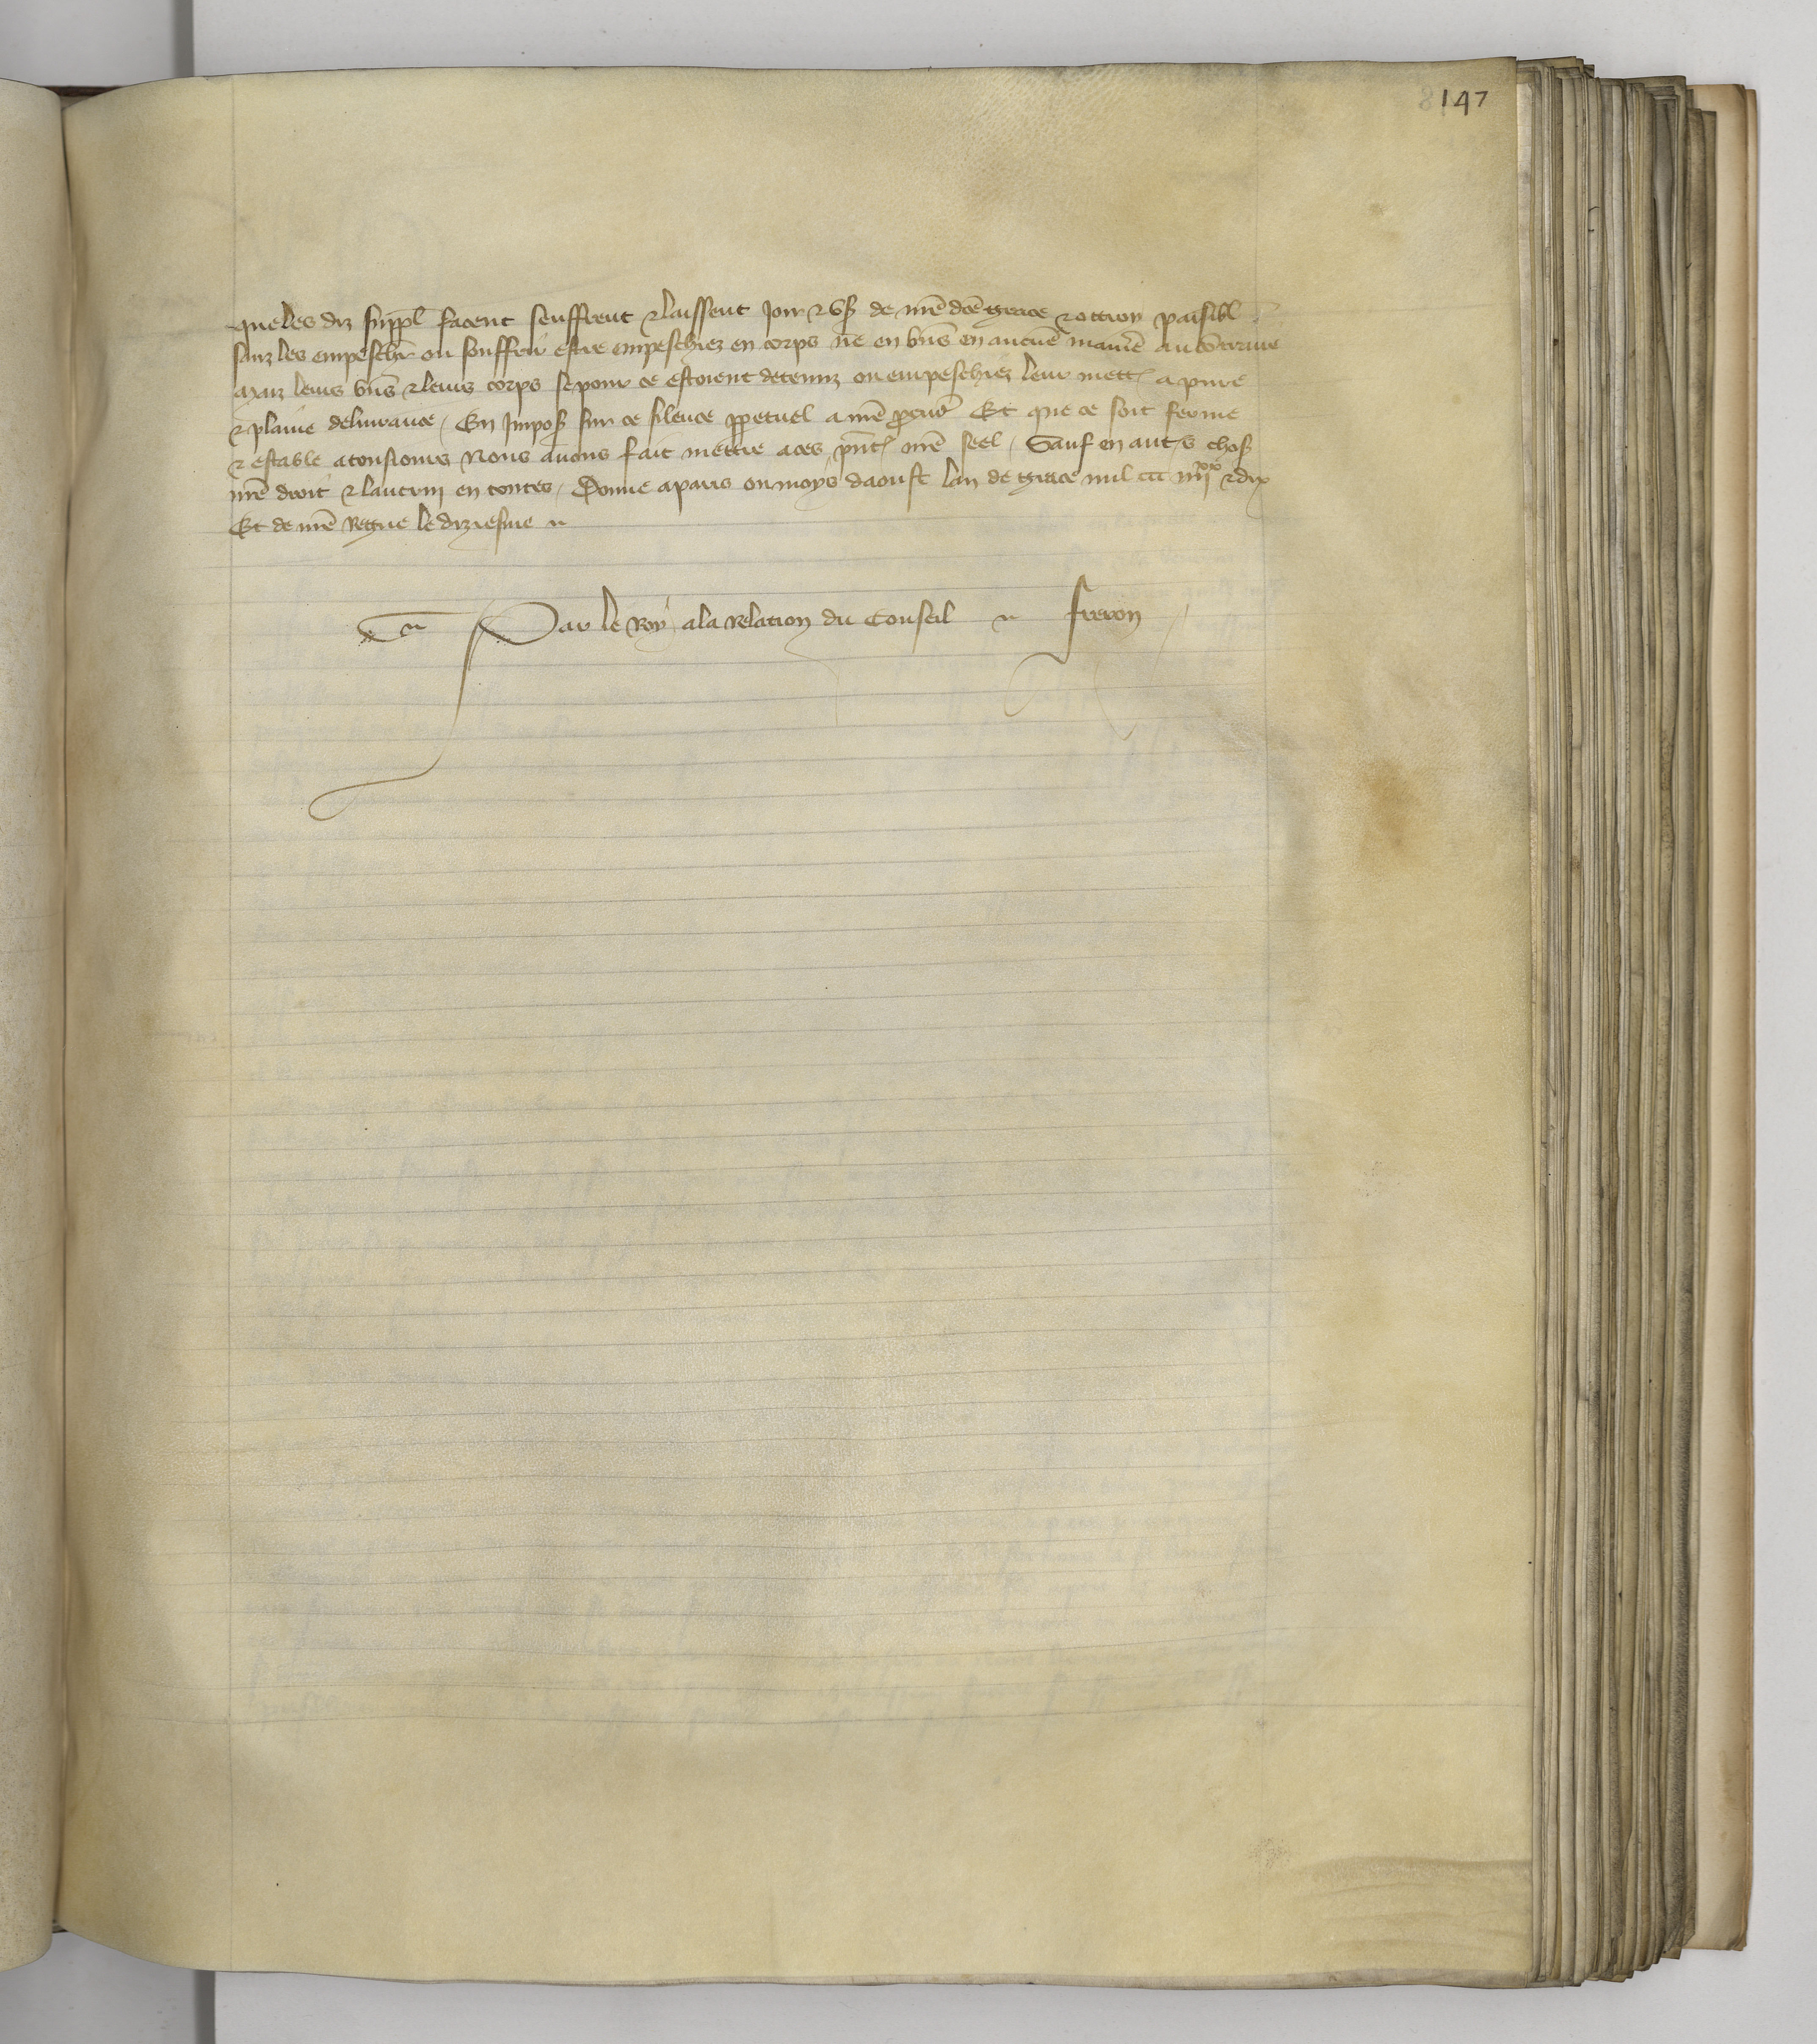 147
que les diz suppl facent seuffrent & laissent Joir & us de nre dce grace & ottroy paisibl
sanz les empeschr ou souffrir estre empeschiez en corps ne en bns en aucune maniere au contraire
Maiz leurs bns & leurs corps se pour ce estoient detenuz ou empeschiez leur mett a pure
& plaine delivrance / En Impos sur ce silence ppetuel a nre procur Et que ce soit ferme
& estable a tousiours Nous avons fait mettre a ces pnt nre seel / Sauf en autres chos
nre droit & lautruy en toutes / Donne a paris ou moys daoust lan de grace mil ccc iiii xx & dix
Et de nre Regne le diziesme
Par le Roy a la Relation du Conseil freron